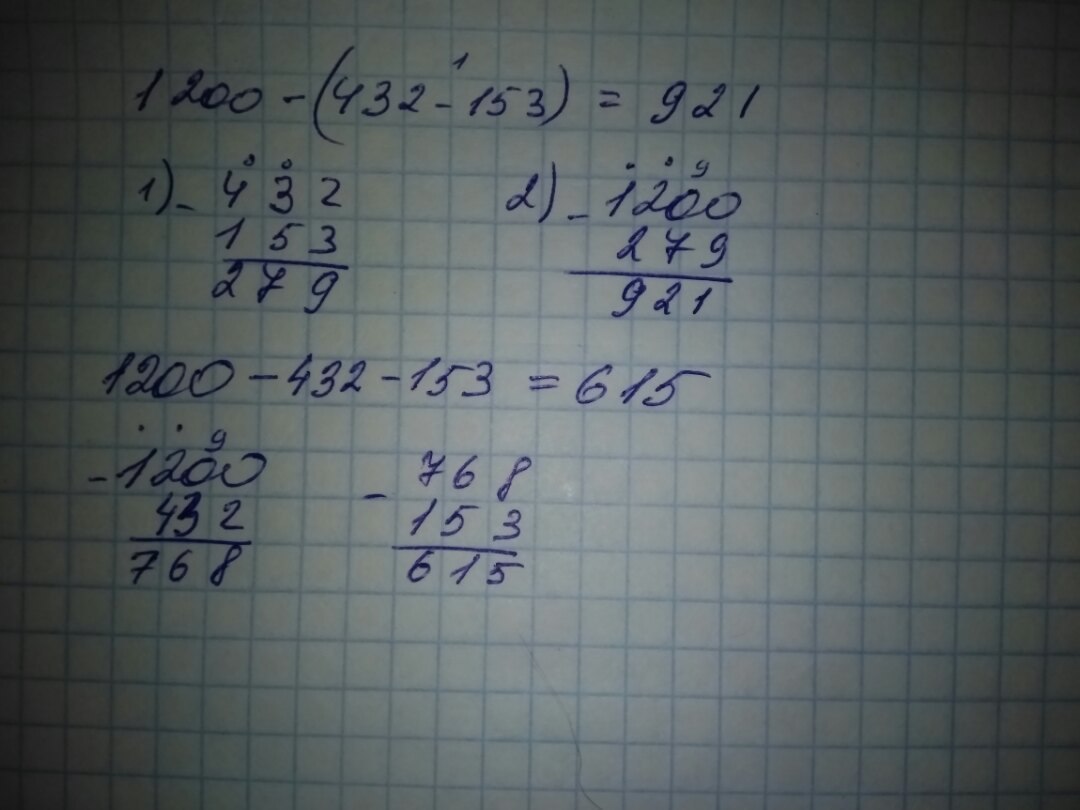 1
1200 - (432 - 153) = 921
1) - 432
153
279
2) - 1200
9
279
921
1200 - 432 - 153 = 615
9
- 1200
432
768
- 768
153
615